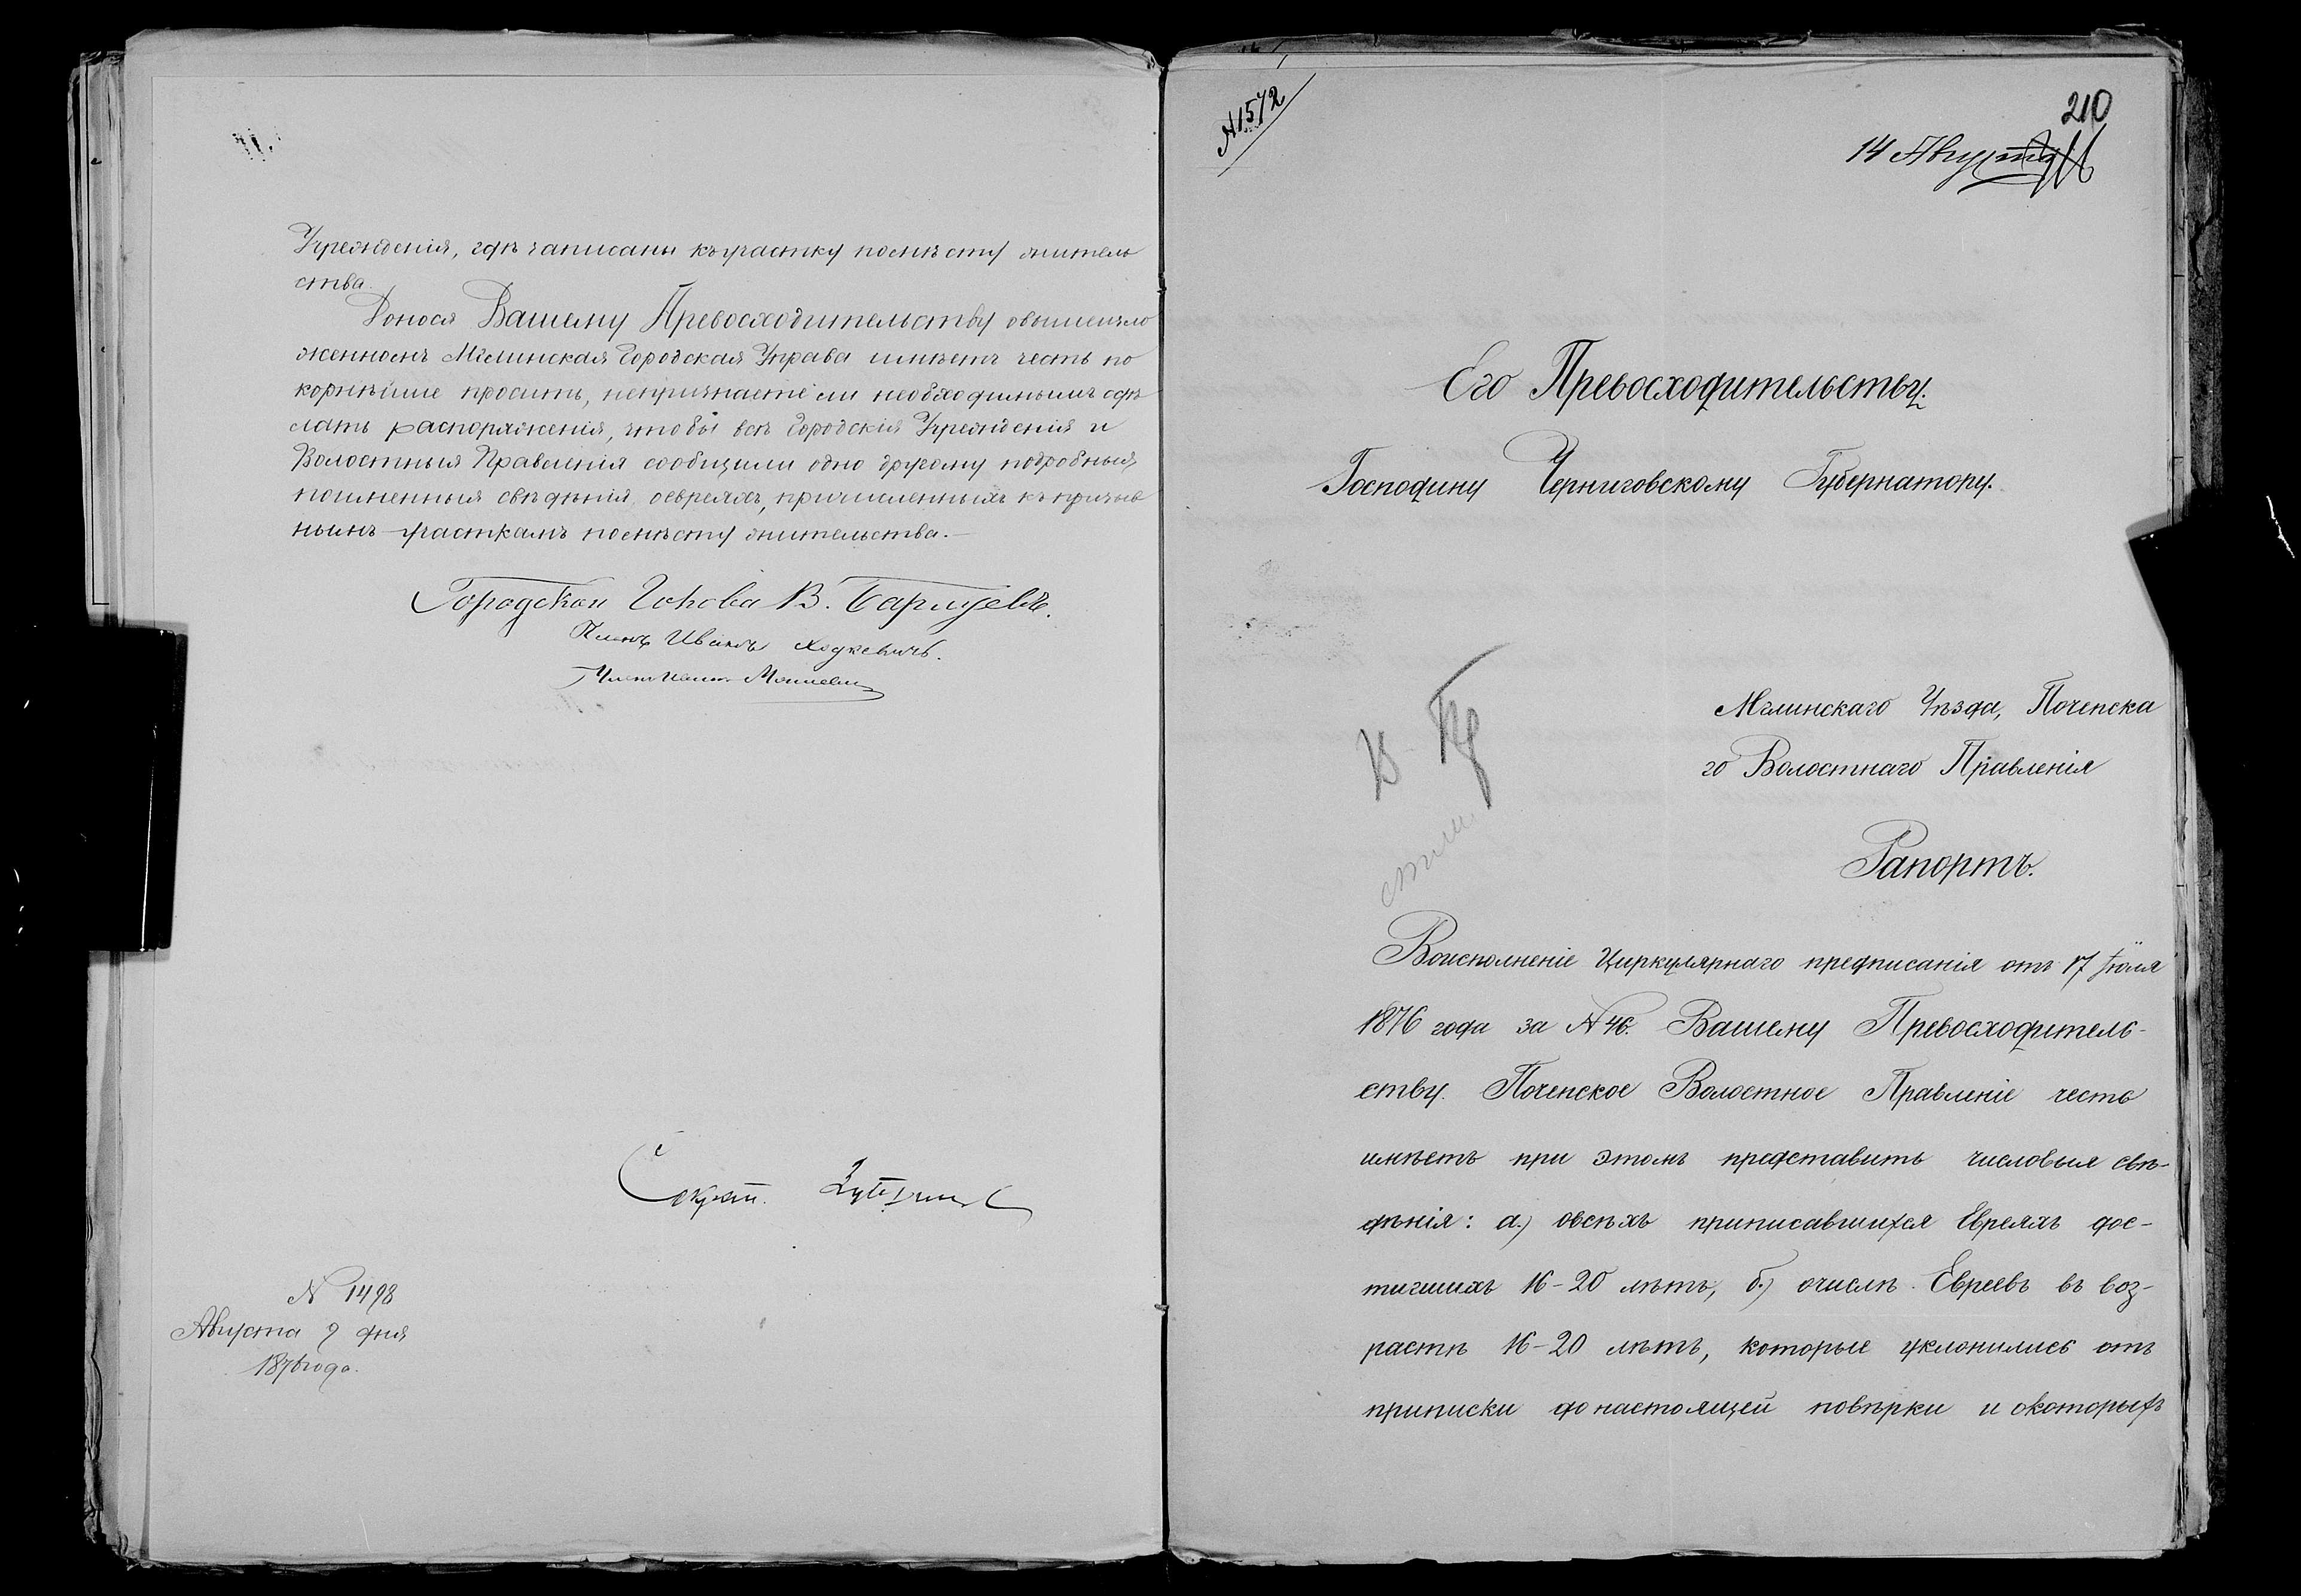 Учрежденія, гдѣ записаны къ участку помѣсту житель
ства.
Донося Вашему Превосходительству овышеизло
женномъ Мглинская Городская Управа имѣетъ честь по
корнѣйше просить, непризнаете ли необходимымъ сдѣ
лать распоряженія, чтобы всѣ Городскія Учрежденія и
Волостныя Правленія сообщили одно другому подробныя,
поименныя свѣдѣнія, оевреяхъ, причисленныхъ къ призыв
нымъ участкамъ помѣсту жительства.—
Городской Голова В.
Членъ Иванъ Ходкевичъ.
Членъ
Секрет.
N 1498
Августа 9 дня
1876 года.
N 1572
210
14 Августа
Его Превосходительству.
Господину Черниговскому Губернатору.
Мглинскаго Уѣзда, Почепска
го Волостнаго Правленія
Рапортъ.
Воисполненіе Циркулярнаго предписанія отъ 17 Іюля
1876 года за N 46. Вашему Превосходитель-
ству. Почепское Волостное Правленіе честь
имѣетъ при этомъ представить числовыя свѣ-
дѣнія: а.) овсѣхъ приписавшихся Евреяхъ дос-
тигшихъ 16-20 лѣтъ, б.) очислѣ Евреевъ въ воз-
растѣ 16-20 лѣтъ, которые уклонились отъ
приписки до настоящей повѣрки и окоторыхъ